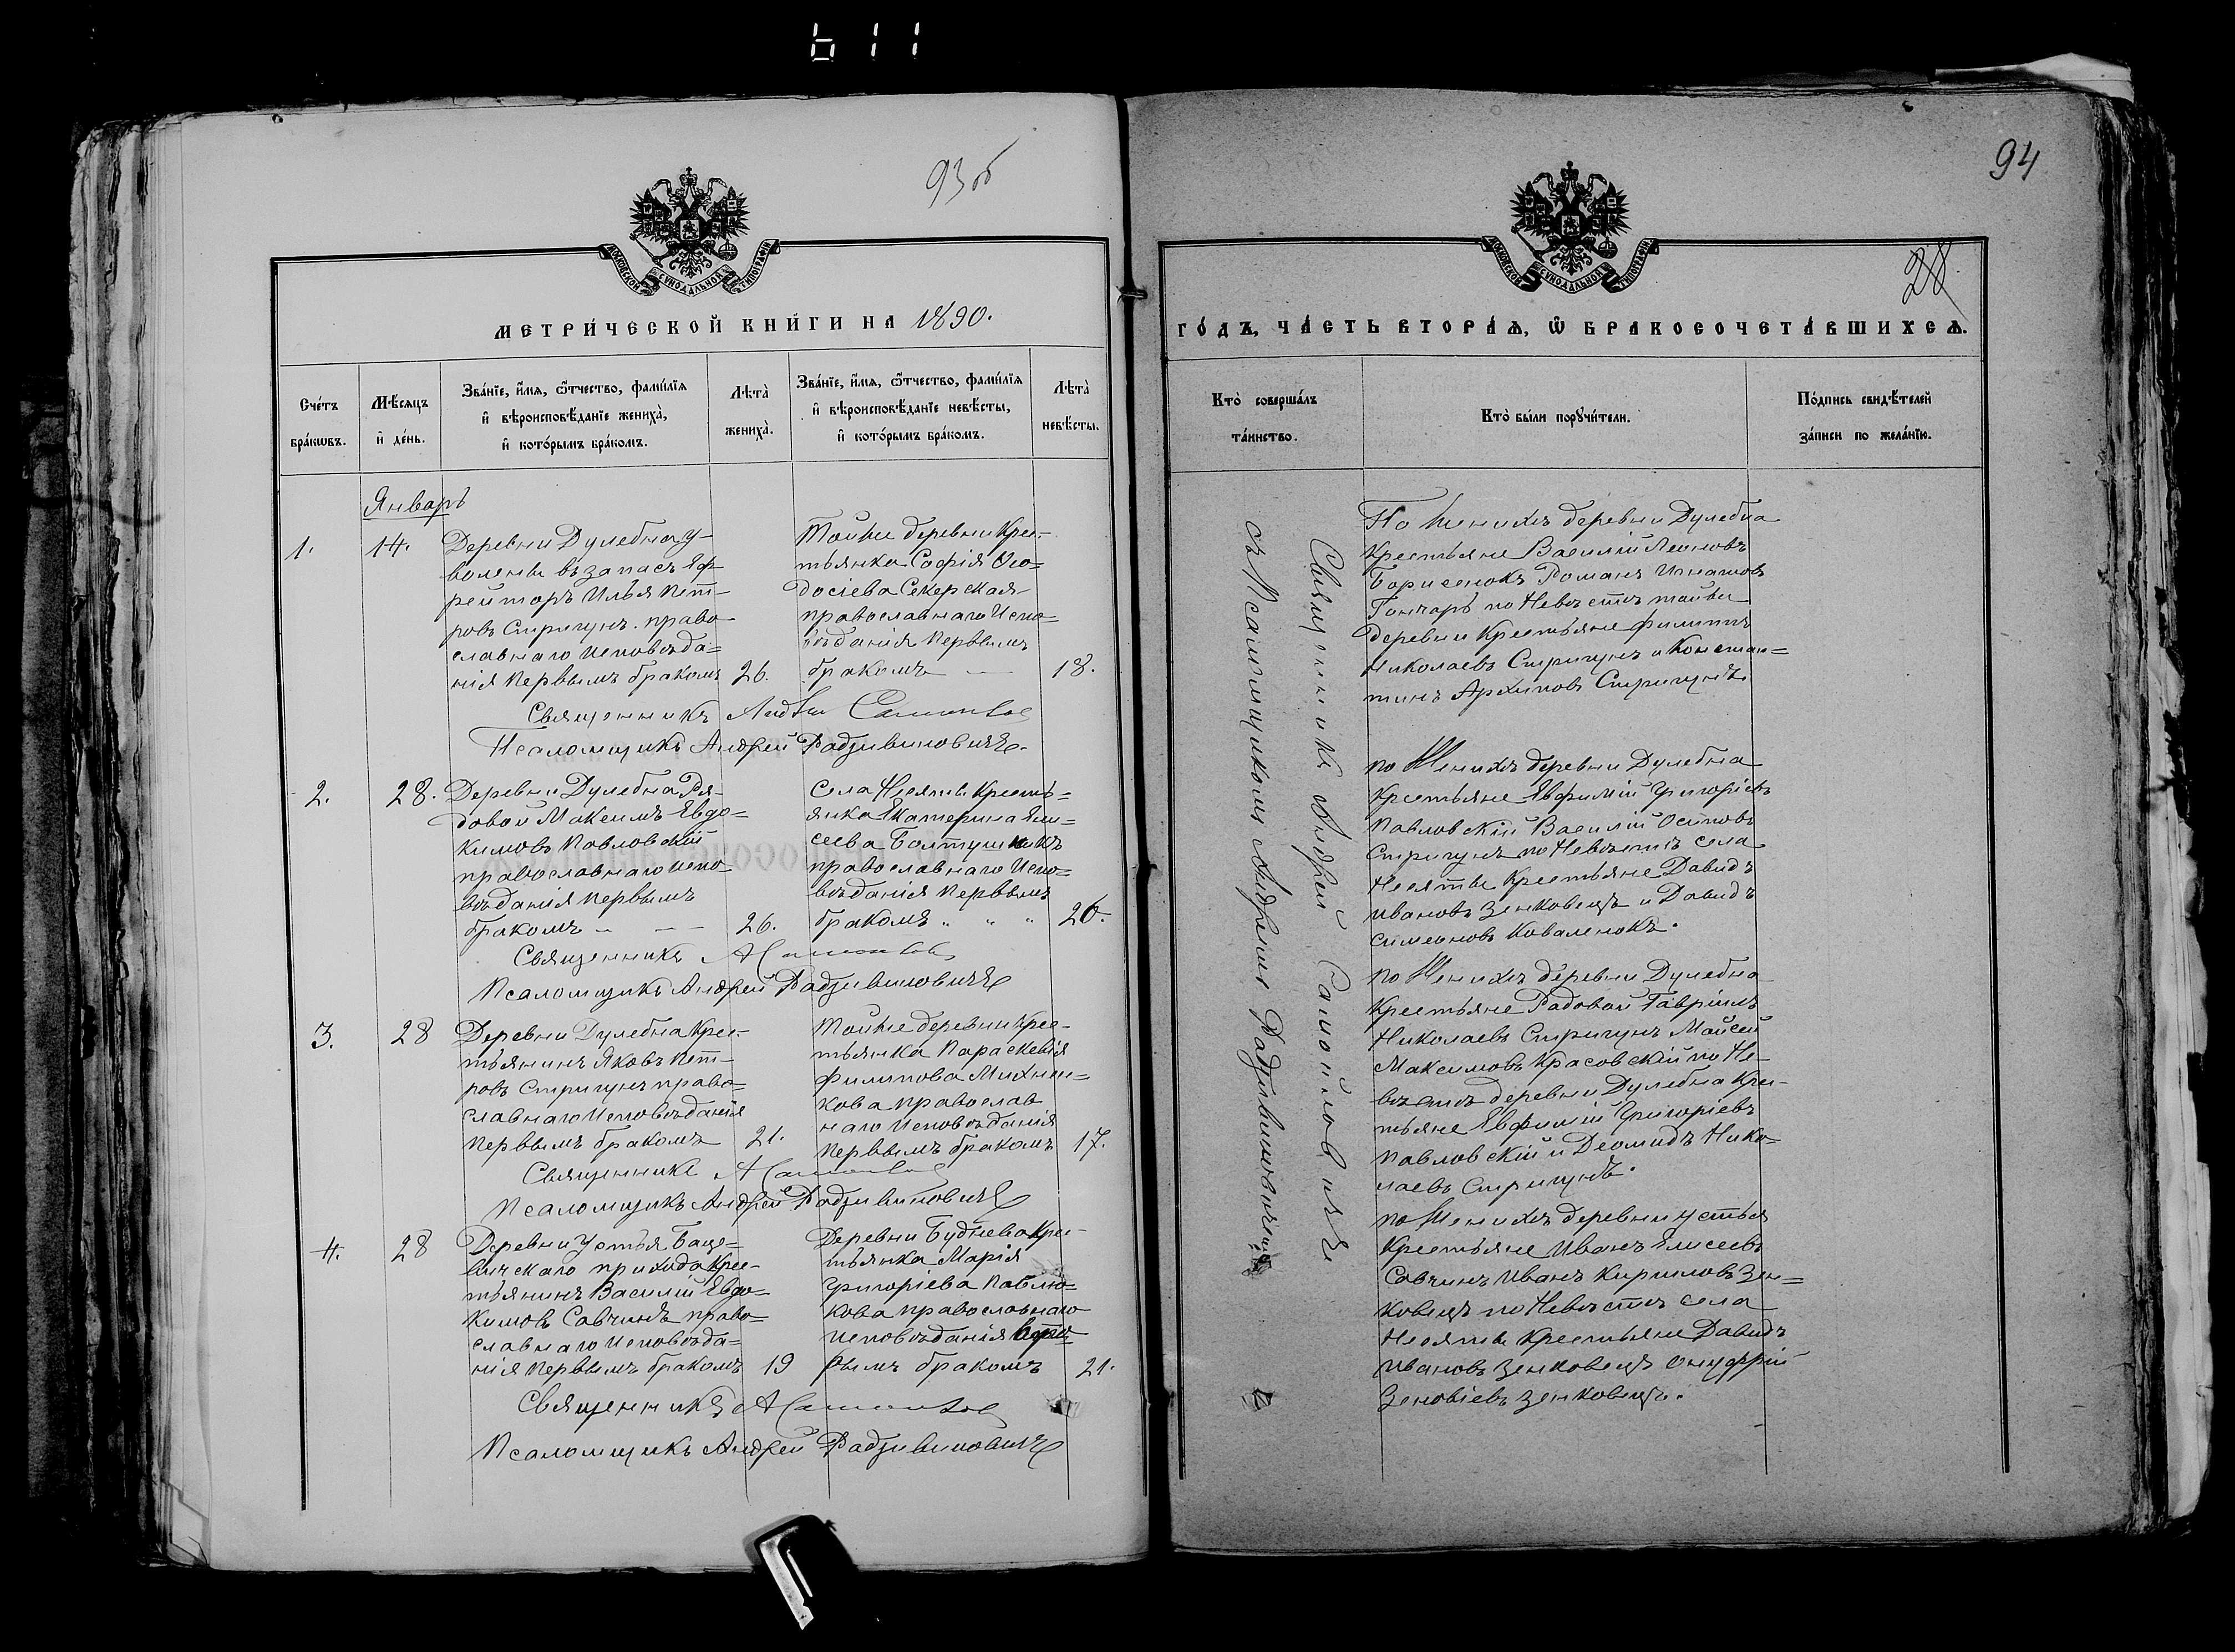 611
93 об
МОСКОВСКОЙ СУНОДАЛЬНОЙ ТИПОГРАФІИ
МЕТРИ́ЧЕСКОЙ КНИ́ГИ НА 1890.
Сче́тъ бра́кѡвъ.
Мѣ́сяцъ и҆ де́нь.
Зва́нїе, и҆́мя, ѻ҆́тчество, фами́лїя и҆ вѣроисповѣ́данїе жениха̀, и҆ кото́рымъ бра́комъ.
Лѣта̀ жениха̀.
Зва́нїе, и҆́мя, ѻ҆́тчество, фами́лїя и҆ вѣроисповѣ́данїе невѣ́сты, и҆ кото́рымъ бра́комъ.
Лѣта̀ невѣ́сты.
Январь
1.
14.
Деревни Дулебна у-
воленный въ запасъ Еф-
рейторъ Илья Пет-
ровъ Стригунъ право-
славнаго исповѣда=
нія первымъ бракомъ
26.
Тойже деревни Крес-
тьянка Софія Ѳео=
досіева Секерская
православнаго Испо=
вѣданія первымъ
бракомъ —
18.
Священникъ Андрей Самойлов
Псаломщикъ Андрей Радзивиновичъ.
2.
28.
Деревни Дулебна Ря-
довой Максимъ Евдо=
кимовъ Павловскій
православнаго испо-
вѣданія первымъ
бракомъ - - -
26.
Села Несяты Кресть=
янка Екатерина Ели=
сеева Болтушникъ
православнаго Испо=
вѣданія первымъ
бракомъ " " "
20.
Священникъ А Самойлов
Псаломщикъ Андрей Радзивиновичъ
3.
28
Деревни Дулебна Крес-
тьянинъ Яковъ Пет-
ровъ Стригунъ право=
славнаго Исповѣданія
первымъ бракомъ
21.
Тойже деревни Крес-
тьянка Параскевія
Филипова Михнен=
кова православ
наго Исповѣданія
первымъ бракомъ
17.
Священникъ А Самойлов
Псаломщикъ Андрей Радзивиновичъ
4.
28
Деревни Устья Баце=
вичскаго прихода Крес-
тьянинъ Василій Евдо=
кимовъ Савчинъ право=
славнаго исповѣда=
нія первымъ бракомъ
19
Деревни Буднево Крес-
тьянка Марія
Григоріева Павлю=
кова православнаго
исповѣданія вто
рымъ бракомъ
21.
Священникъ А Самойлов
Псаломщикъ Андрей Радзивиновичъ
94
28
МОСКОВСКОЙ СУНОДАЛЬНОЙ ТИПОГРАФІИ
ГО́ДЪ, ЧА́СТЬ ВТОРА́Ѧ, Ѽ БРАКОСОЧЕТА́ВШИХСѦ.
Кто̀ соверша́лъ та́инство.
Кто̀ бы́ли порꙋчи́тели.
По́дпись свидѣ́телей за́писи по жела́нїю.
Священникъ Андрей Самойловичъ
съ Псаломщикомъ Андреемъ Радзивиновичемъ
По Женихѣ деревни Дулебна
Крестьяне Василій Леоновъ
Борисенокъ Романъ Игнатовъ
Гончаръ по Невѣстѣ тойже
деревни Крестьяне Филиппъ
Николаевъ Стригунъ и Констан=
тинъ Архиповъ Стригунъ.
по Женихѣ деревни Дулебна
Крестьяне Евфимій Григоріевъ
Павловскій Василій Осиповъ
Стригунъ по Невѣстѣ села
Несяты Крестьяне Давидъ
Ивановъ Зенковецъ и Давидъ
Симеоновъ Коваленокъ.
по Женихѣ деревни Дулебна
Крестьяне Радовой Гавріилъ
Николаевъ Стригунъ Майсей
Максимовъ Красовскій по Не-
вѣстѣ деревни Дулебна Крес-
тьяне Евфимій Григоріевъ
Павловскій и Деомидъ Нико=
лаевъ Стригунъ.
по Женихѣ деревни Устья
Крестьяне Иванъ Елисеевъ
Савчинъ Иванъ Кириловъ Зен=
ковецъ по Невѣстѣ села
Несяты Крестьяне Давидъ
Ивановъ Зенковецъ Онуфрій
Зеновіевъ Зенковецъ.